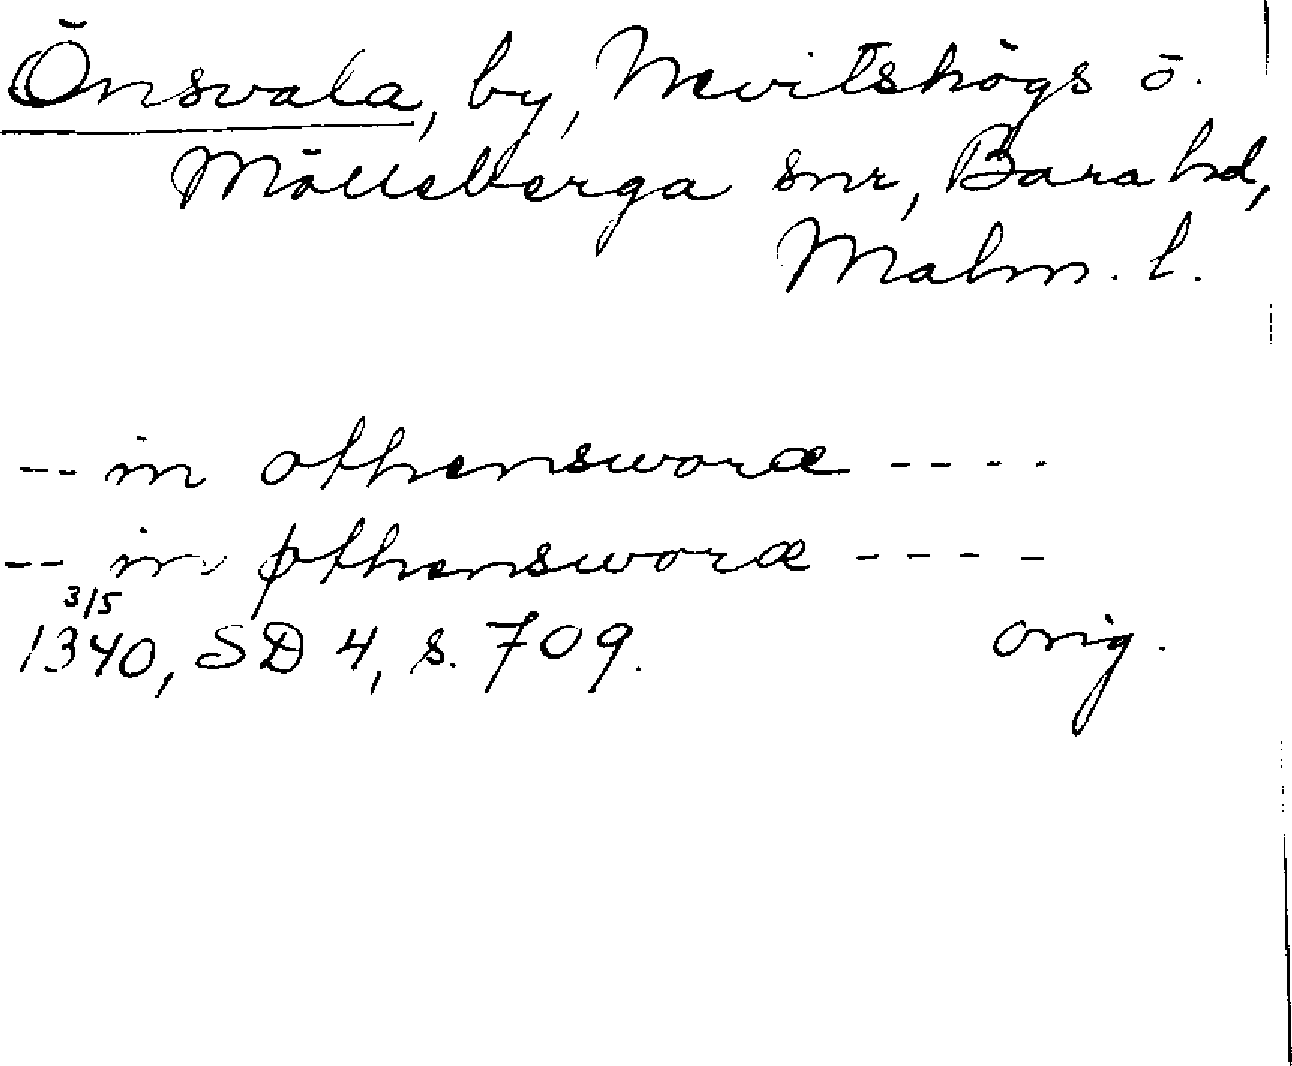 Önsvala, by, Nevitshögs o.
Mölleberga snr, Bara hd,
Malm. l.
-- in othensworæ ----
-- in øthensworæ ----
3/5
1340, SD 4, s. 709. orig.